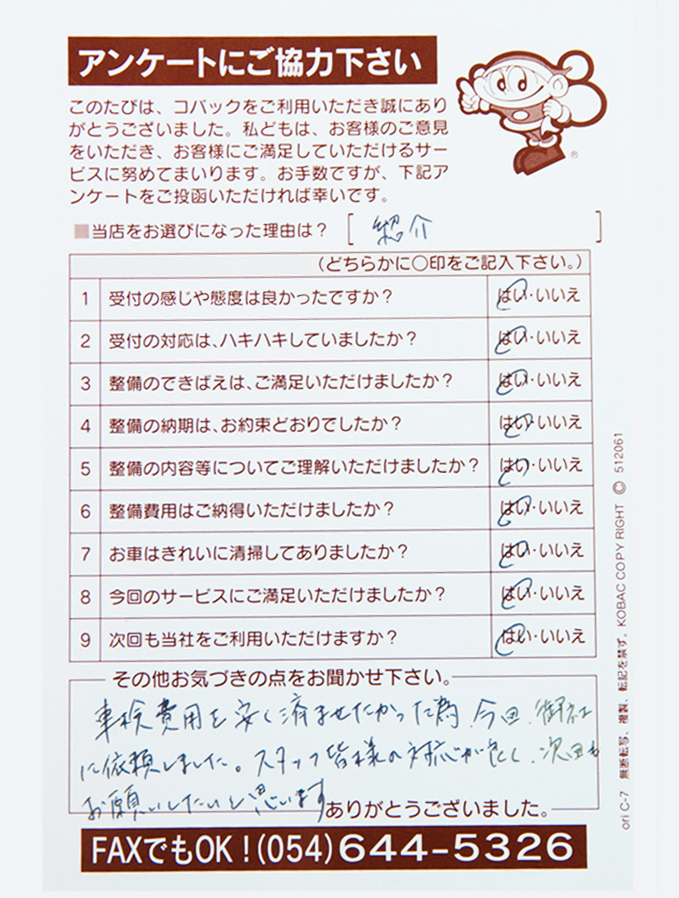 アンケートにご協力下さい
このたびは、コバックをご利用いただき誠にあり
がとうございました。私どもは、お客様のご意見
をいただき、お客様にご満足していただけるサー
ビスに努めてまいります。お手数ですが、下記ア
ンケートをご投函いただければ幸いです。
®
■当店をお選びになった理由は? [ 紹介 ]
(どちらかに○印をご記入下さい。)
1 受付の感じや態度は良かったですか? はい・いいえ
2 受付の対応は、ハキハキしていましたか? はい・いいえ
3 整備のできばえは、ご満足いただけましたか? はい・いいえ
4 整備の納期は、お約束どおりでしたか? はい・いいえ
5 整備の内容等についてご理解いただけましたか? はい・いいえ
6 整備費用はご納得いただけましたか? はい・いいえ
7 お車はきれいに清掃してありましたか? はい・いいえ
8 今回のサービスにご満足いただけましたか? はい・いいえ
9 次回も当社をご利用いただけますか? はい・いいえ
その他お気づきの点をお聞かせ下さい。
車検費用を安く済ませたかった為、今回、御社
に依頼しました。スタッフ皆様の対応が良く、次回も
お願いしたいと思います
ありがとうございました。
FAXでもOK!(054)644-5326
ori C-7 無断転写、複製、転記を禁ず。KOBAC COPY RIGHT © 512061